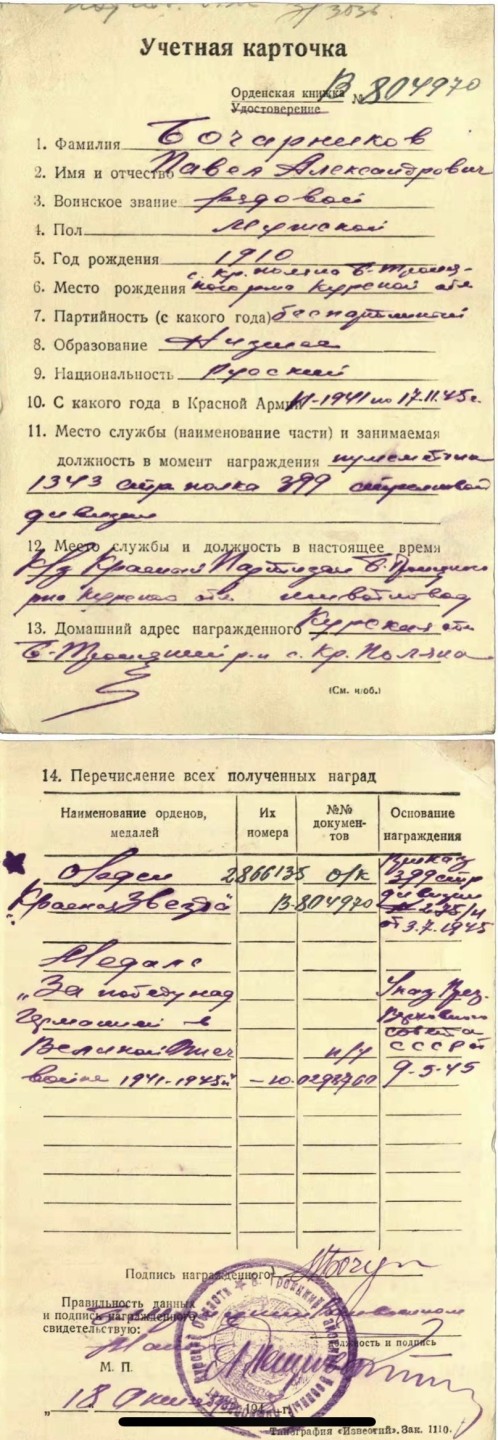 Учетная карточка
Орденская книжка В № 804970
Удостоверение
1. Фамилия Бочарников
2. Имя и отчество Павел Александрович
3. Воинское звание рядовой
4. Пол Мужской
5. Год рождения 1910
с. Кр. поляна Б-Троиц-
6. Место рождения кого рна Курской обл
7. Партийность (с какого года) беспартийный
8. Образование Низшее
9. Национальность Русский
10. С какого года в Красной Армии 1941 по 17.11.45г.
11. Место службы (наименование части) и занимаемая
должность в момент награждения
1343 стр полка 399 стрелковой
дивизии
12. Место службы и должность в настоящее время
К/з Красный Партизан Б. Троицкого
рна Курской обл
13. Домашний адрес награжденного Курская обл
Б-Троицкий р-н с. Кр. Поляна
(См. н/об.)
14. Перечисление всех полученных наград
Наименование орденов, медалей
Их номера
№№ документов
Основание награждения
Орден 2866135 о/к Приказ
399 стр
"Красная Звезда" В-804970 дивизии
№ 275/н
от 3.7.1945
Медаль
"За победу над Указ През.
Германией в Верховного
совета
Великой Отеч н/у СССР от
войне 1941-1945г" - Ю.0298760 9-5-45
Подпись награжденного
Правильность данных
и подпись награжденного
свидетельствую:
должность и подпись
М. П.
„18 194 г.
Типография «Известий». Зак. 1110.